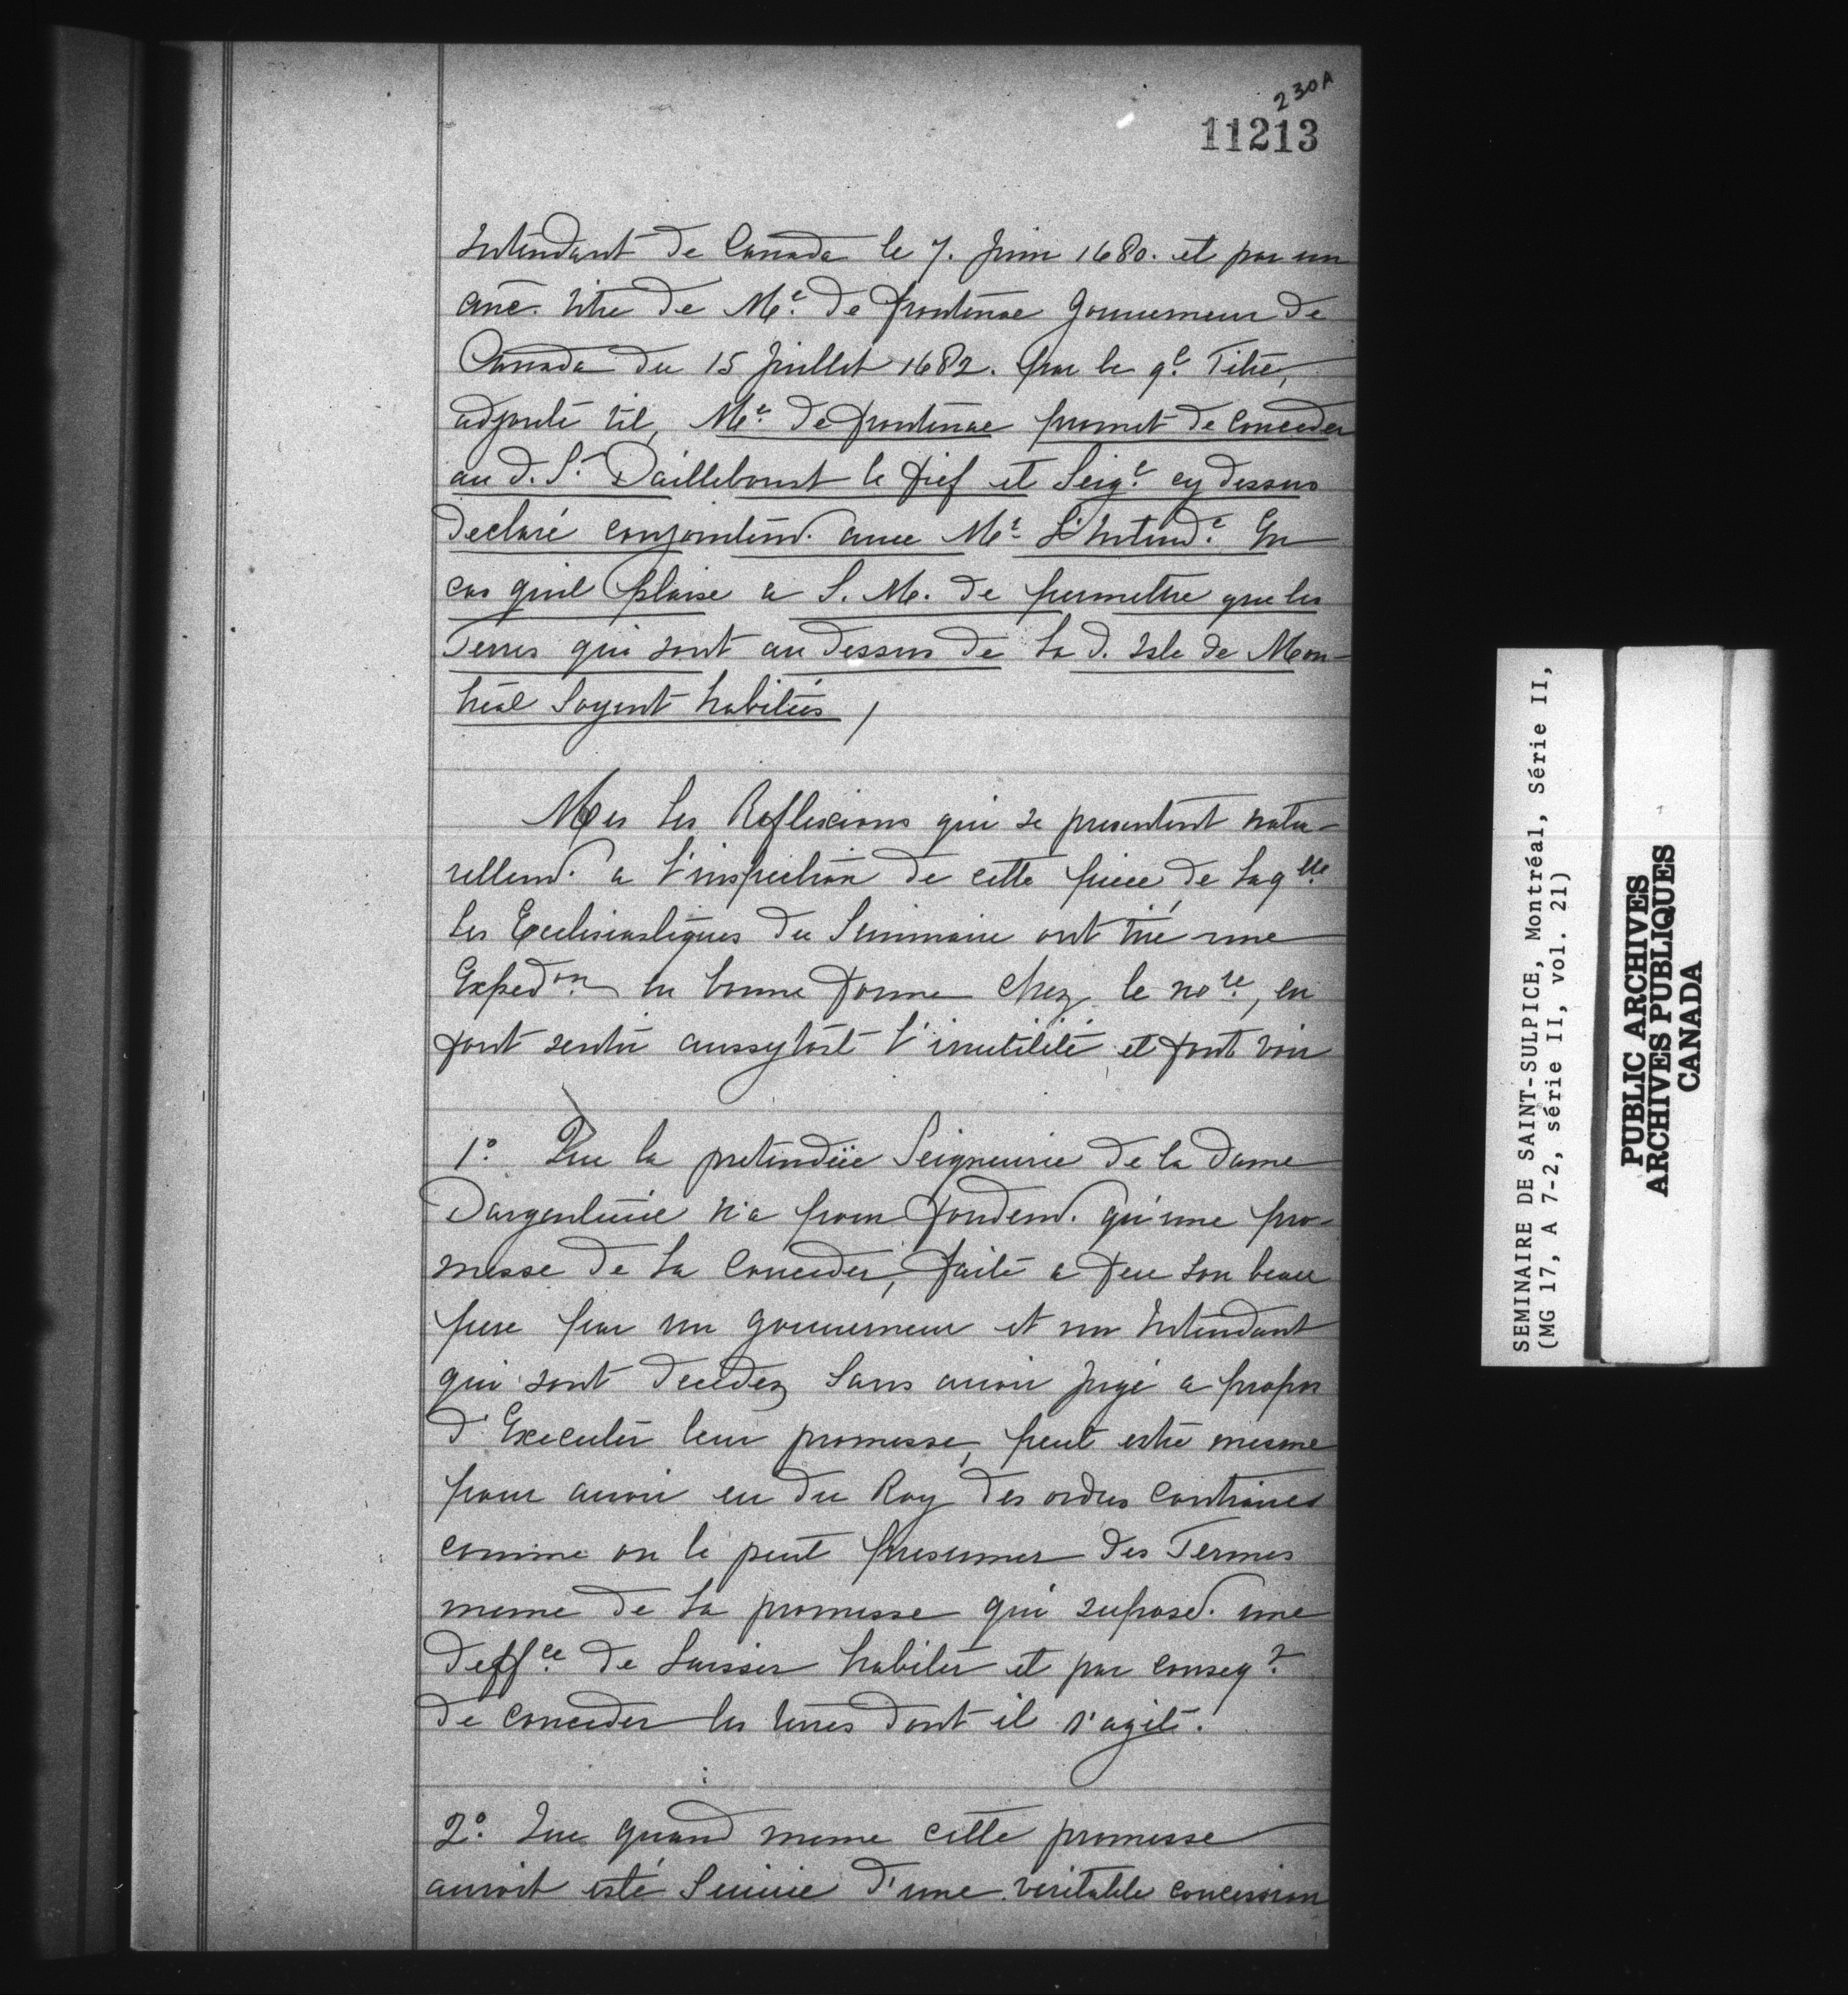 230A
11213
Intendant de Canada le 7. Juin 1680. et par un
anc. titre de Mr. de frontenac Gouuerneur de
Canada du 15 Juillet 1682. par le ql. Titre,
adjoute til, Mr. de frontenac promet de Conceder
au d. Sr. Daillebout le fief et Seigr. cy dessus
declaré conjointem. auec Mr. L'Intendt. En
cas quil plaise a S. M. de permettre que les
Terres qui sont au dessus de La d. Isle de Mon-
tréal Soyent habitées,
Mes Les Reflexions qui se presentent natu-
rellem. a L'inspection de cette piece, de Laqlle.
Les Ecclesiastiques du Seminaire ont tiré une
Expedon. en bonne forme chez le nore., en
font sentir aussytost L'inutilité et font voir
1º. Que la pretendüe Seigneurie de la dame
Dargenteüie n'a pour fondem. qu'une pro-
messe de La Conceder, faite a feu son beau
pere par un gouuerneur et un Intendant
qui sont decedez Sans auoir jugé a propos
d'Executer leur promesse, peut estre mesme
pour auoir eu du Roy des ordres contraires
comme on le peut presumer des Termes
meme de La promesse qui suposed. une
deffce. de Laisser habiter et par conseqt.
de conceder les terres dont il s'agite.
2º. Que quand meme cette promesse
auroit esté Suiuie d'une veritable concession
SEMINAIRE DE SAINT-SULPICE, Montréal, Série II,
(MG 17, A 7-2, série II, vol. 21)
PUBLIC ARCHIVES
ARCHIVES PUBLIQUES
CANADA